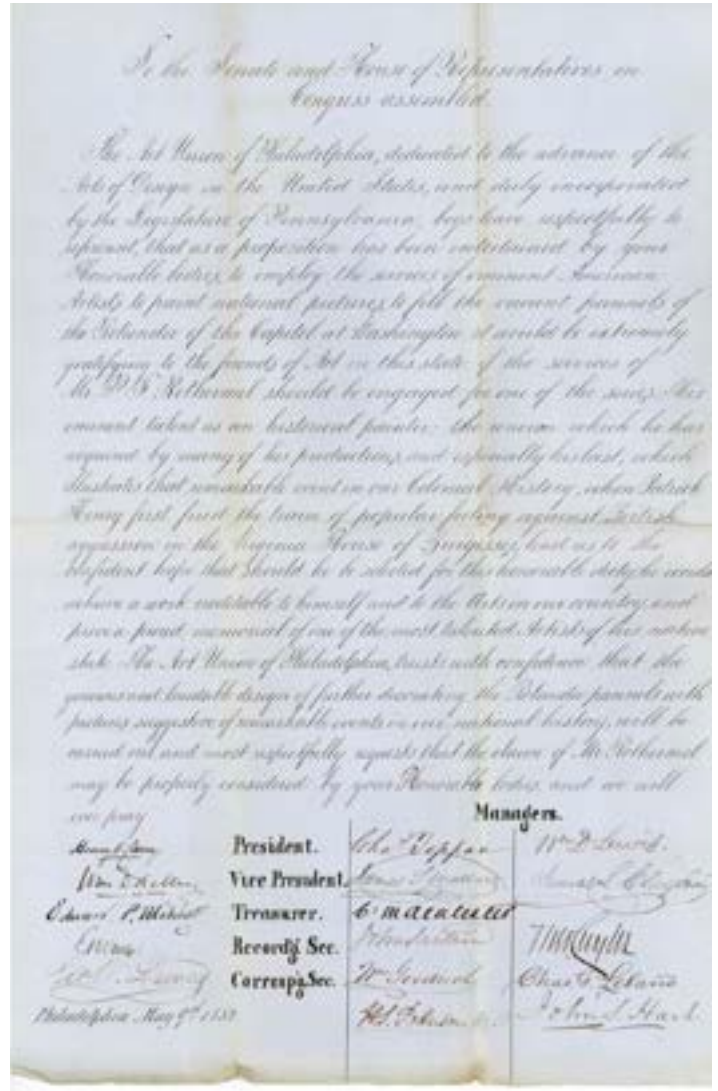 To the Senate and House of Representatives in
Congress assembled.
The Art Union of Philadelphia, dedicated to the advance of the
Arts of Design in the United States, and duly incorporated
by the Legislature of Pennsylvania, begs leave respectfully to
represent, that as a proposition has been entertained by your
Honorable bodies, to employ the services of eminent American
Artists to paint national pictures, to fill the vacant pannels of
the Rotunda of the Capitol at Washington it would be extremely
gratifying to the friends of Art in this state if the services of
Mr. Rothermel should be engaged for one of the series. His
eminent talent as an historical painter the renown which he has
acquired by many of his productions, and especially his last, which
illustrates that remarkable event in our Colonial History, when Patrick
Henry first fired the train of popular feeling against British
oppression in the Virginia House of Burgesses, lead us to the
confident hope that should he be selected for this honorable duty, he would
achieve a work creditable to himself and to the Arts in our country, and
prove a proud memorial of one of the most talented Artists of his native
state. The Art Union of Philadelphia, trusts with confidence that the
generous and laudable design of further decorating the Rotunda pannels with
pictures suggestive of remarkable events in our national history, will be
carried out and most respectfully requests that the claim of Mr. Rothermel
may be properly considered by your Honorable bodies, and we will
ever pray
Managers.
President.
Wm D Lewis.
Vice President.
Treasurer.
Record'g Sec.
Corresp'g Sec.
John S. Hart
Philadelphia May 9th